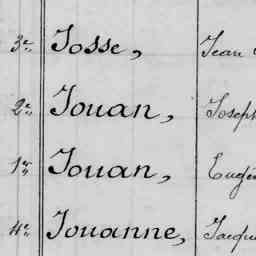 3e Josse, Jean
2e Jouan, Joseph
1er Jouan, Eugè
4e Jouanne, Jacqu